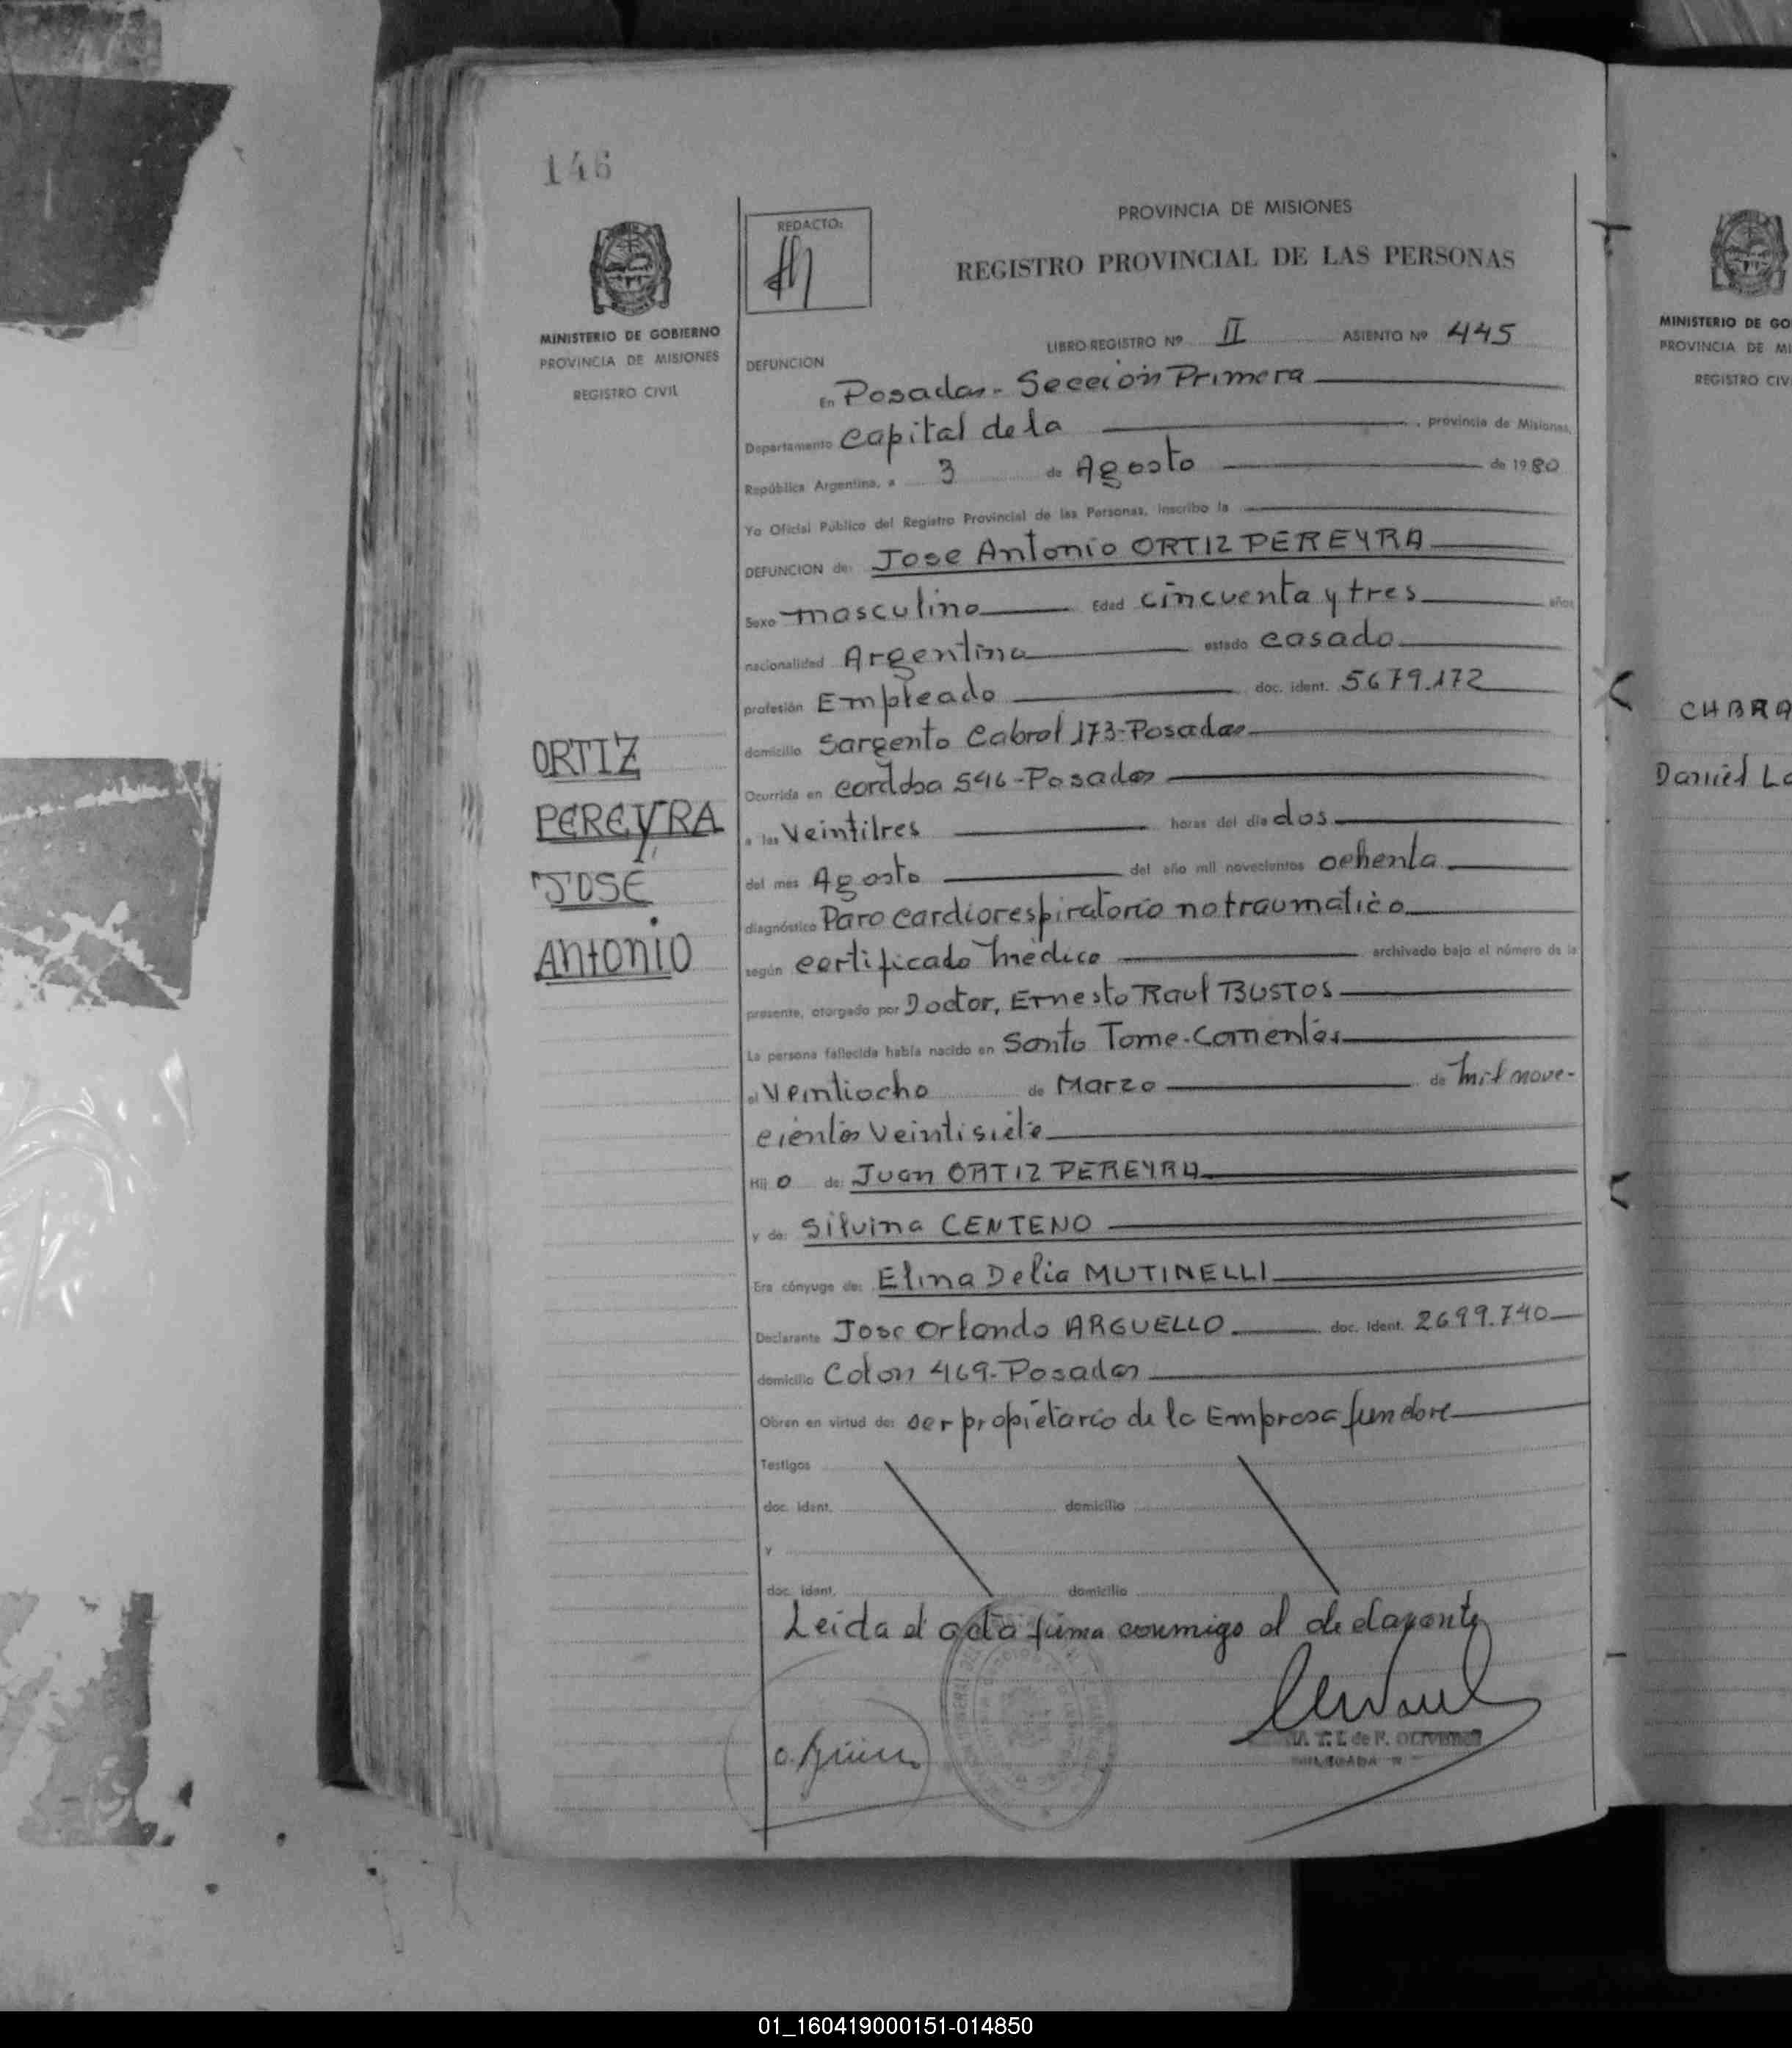 146
REDACTO:
PROVINCIA DE MISIONES
REGISTRO PROVINCIAL DE LAS PERSONAS
MINISTERIO DE GOBIERNO
PROVINCIA DE MISIONES
REGISTRO CIVIL
LIBRO REGISTRO Nº II ASIENTO Nº 445
DEFUNCION
En Posadas - Sección Primera
Departamento Capital de la , provincia de Misiones,
República Argentina, a 3 de Agosto de 1980
Yo Oficial Público del Registro Provincial de las Personas, inscribo la
DEFUNCION de: Jose Antonio ORTIZ PEREYRA
Sexo masculino Edad cincuenta y tres años
nacionalidad Argentina estado casado
profesión Empleado doc. ident. 5679.172
domicilio Sargento Cabral 173-Posadas
Ocurrida en cordoba 546-Posadas
a las Veintitres horas del día dos
del mes Agosto del año mil novecientos ochenta
diagnóstico Paro cardiorespiratorio no traumatico
según certificado médico archivado bajo el número de la
presente, otorgado por Doctor, Ernesto Raul BUSTOS
La persona fallecida había nacido en Santo Tome-Corrientes
el Veintiocho de Marzo de mil nove-
cientos veintisiete
Hij o de: Juan ORTIZ PEREYRA
y de: Silvina CENTENO
Era cónyuge de: Elina Delia MUTINELLI
Declarante Jose Orlando ARGUELLO doc. ident. 2699.740
domicilio Colon 469-Posadas
Obran en virtud de: ser propietario de la Empresa funebre
Testigos
doc. ident. domicilio
y
doc. ident. domicilio
Leida el acta firma conmigo el declarante
de F. OLIVERA
ORTIZ
PEREYRA
JOSE
Antonio
MINISTERIO DE GO
PROVINCIA DE MI
REGISTRO CIV
Daniel
01_160419000151-014850